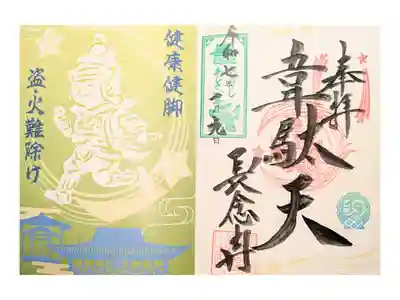 奉拝
韋駄天
長念寺
令和七年
健康健脚
盗・火難除け